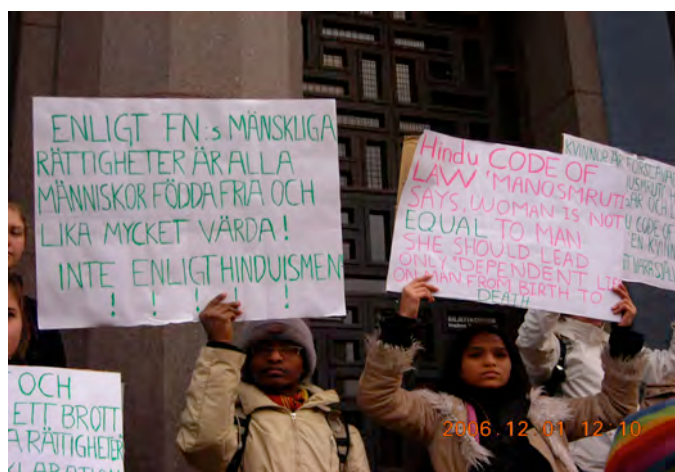 ENLIGT FN:s MÄNSKLIGA
RÄTTIGHETER ÄR ALLA
MÄNNISKOR FÖDDA FRIA OCH
LIKA MYCKET VÄRDA!
INTE ENLIGT HINDUISMEN
! ! ! ! !
Hindu CODE OF
LAW 'MANOSMRUTI'
SAYS, WOMAN IS NOT
EQUAL TO MAN
SHE SHOULD LEAD
ONLY "DEPENDENT LIFE
ON MAN FROM BIRTH TO
DEATH
KVINNOR ÄR
CODE OF
EN KVINNA
OCH
ETT BROTT
A RÄTTIGHETER
KLARATION
2006.12.01 12:10